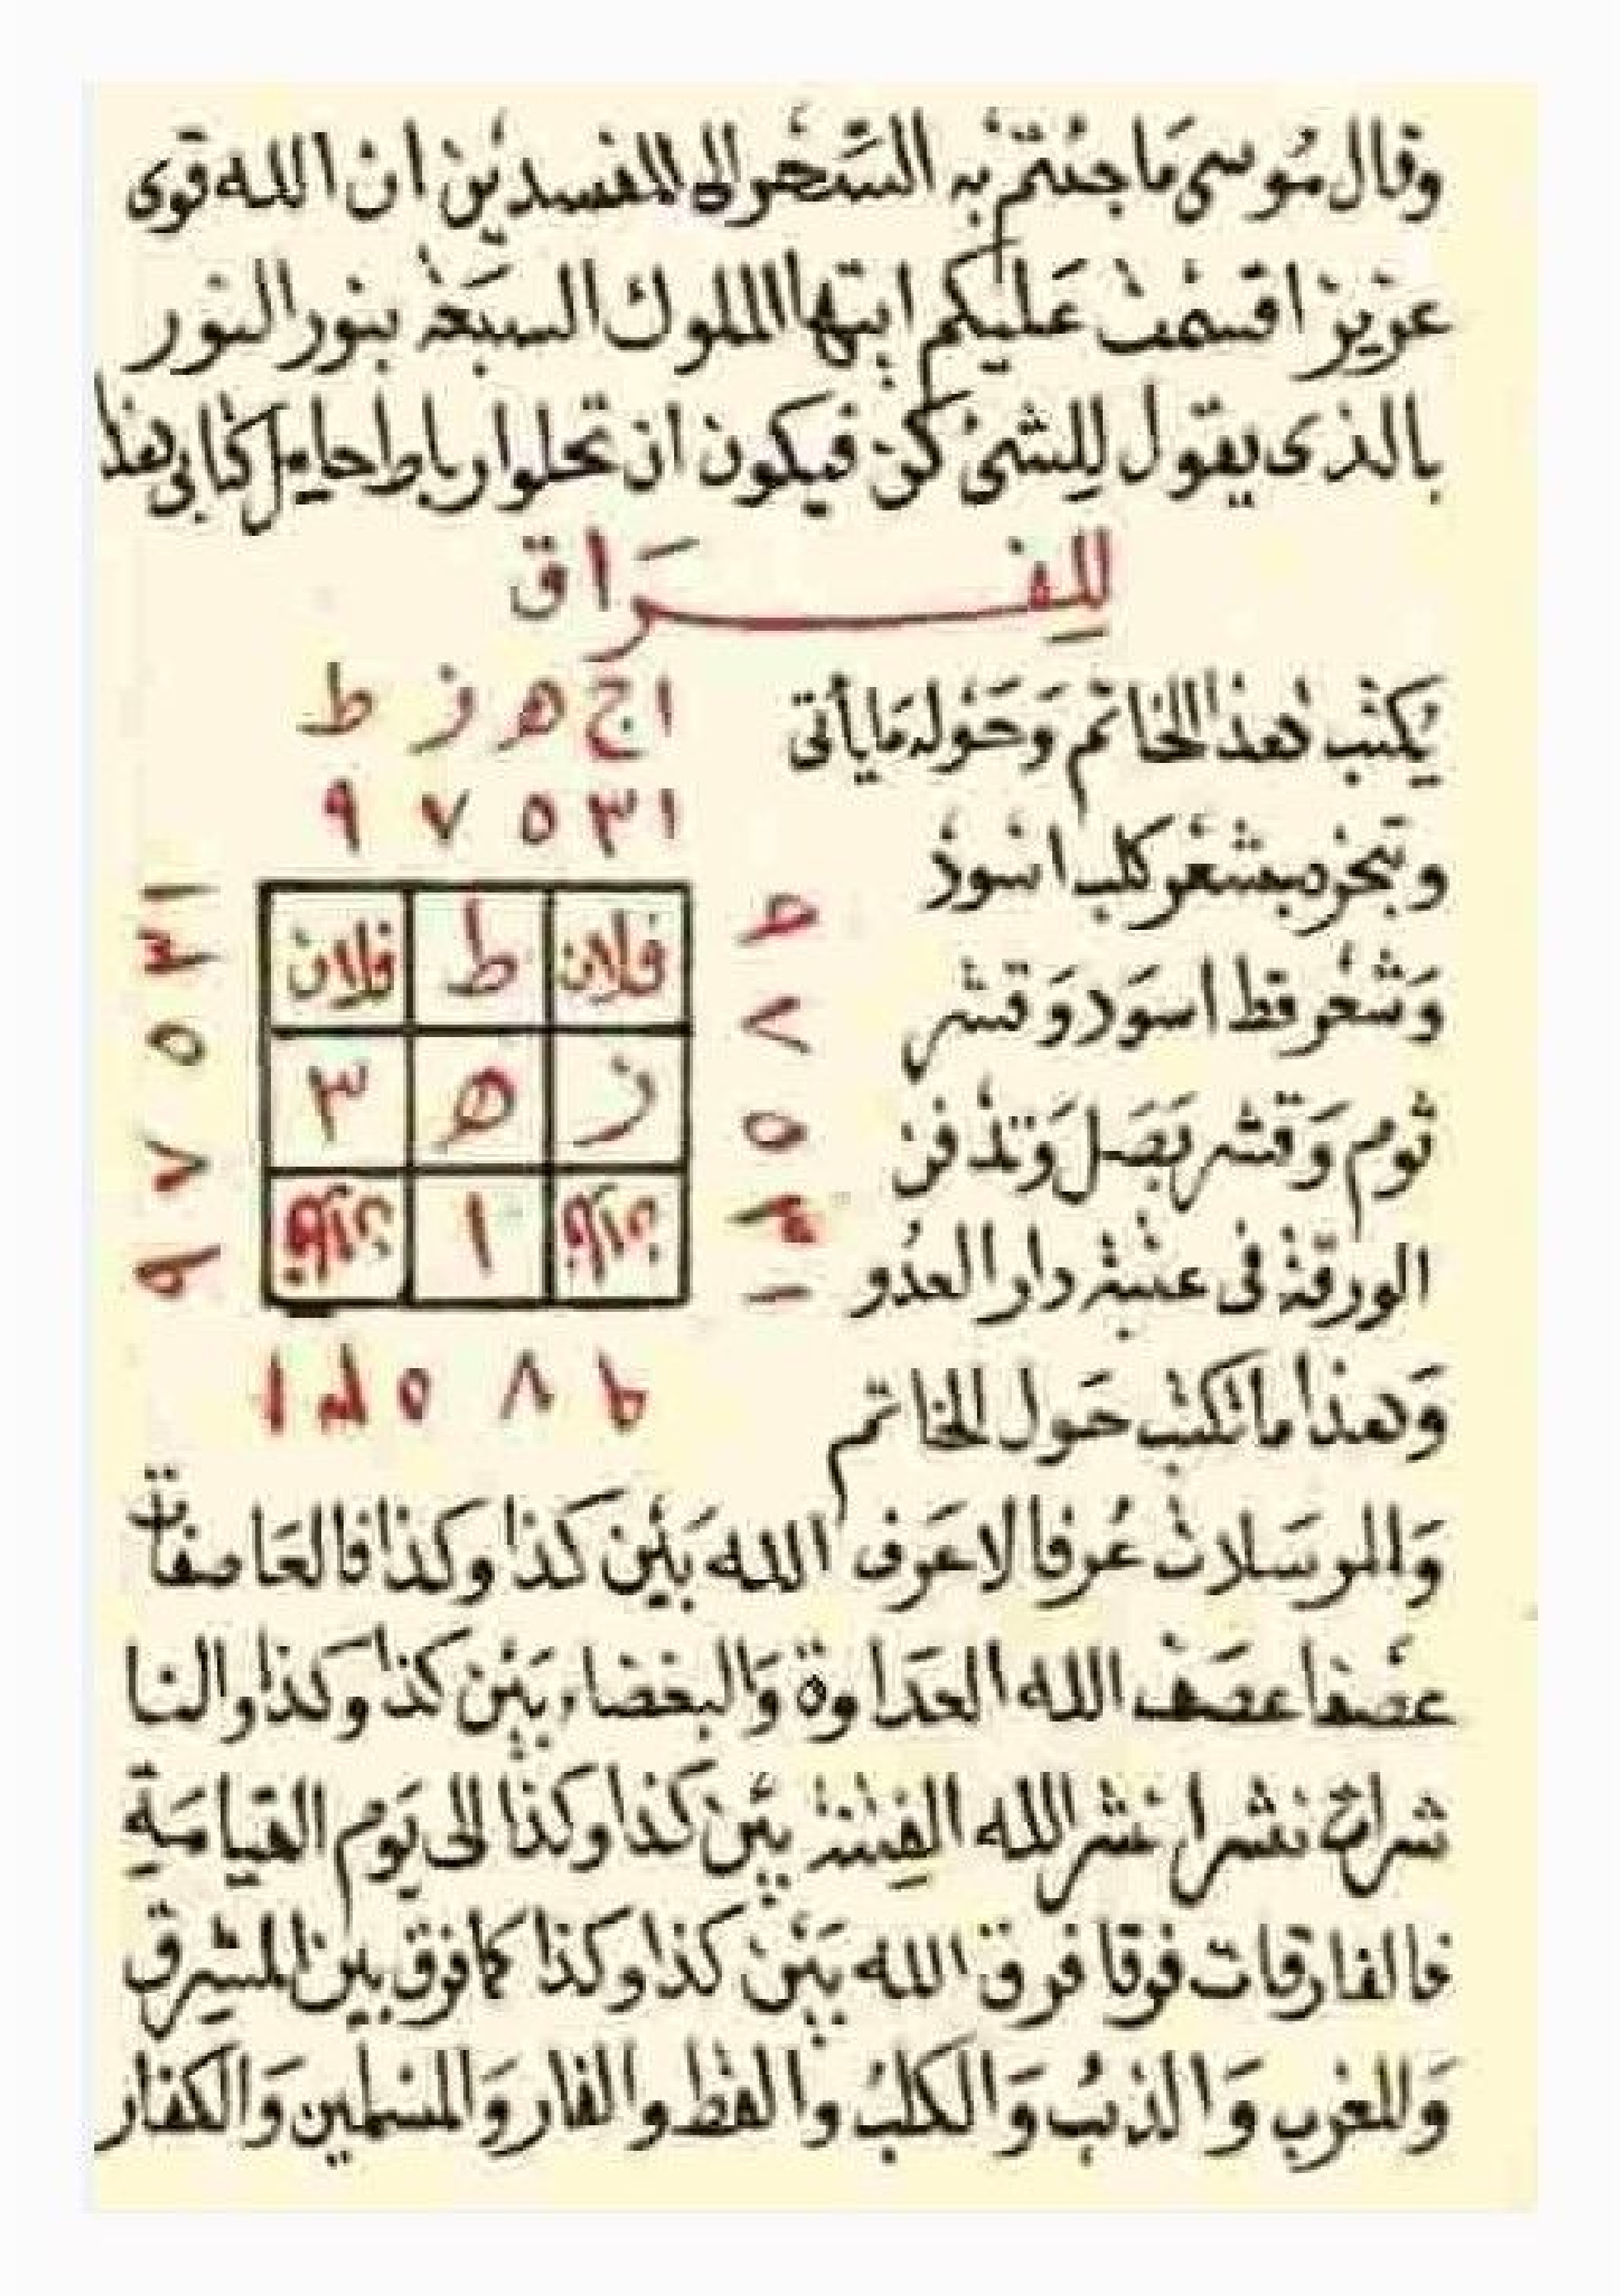 وقال مُوسى مَا جئتم به السَّحر الى المفسدين ان الله قوى
عزيز اقسمت عَليكم ايتها الملوك السبَعة بنور النور
بالذى يقول لِلشئ كن فيكون ان تحلوا رباط احامل كتابى هذا
للِفـــــرَاق
ا ج ه ز ط
يَكتب هذا الخاتم وَحَوله مَا يأتى
١ ٣ ٥ ٧ ٩
وتبخره بشعر كلب اسود
وَشعر قط اسوَد وَقشر
ثوم وَقشر بَصَل وَتدفن
الورقة فى عتبة دار العدُو
فلان ط فلان
ز ه ٣
ا
١ ٣ ٥ ٧ ٩
٧ ٥ ٣ ١
١ ٥ ٨
وَهذا ما تكتب حَول الخاتم
وَالمرسَلات عُرفا لا عَرف الله بَين كذا وكذا فالعَاصفات
عصفا عصَف الله العدَاوة وَالبغضاء بَين كذا وكذا والنا
شرات نشرا نشر الله الفِتنة بَين كذا وكذا الى يَوم القيامَةِ
فالفارقات فرقا فرق الله بَين كذا وكذا كما فرق بين المشرِق
وَالمغرب وَالذئب وَالكلبُ والقط والفار وَالمسلمين وَالكفار